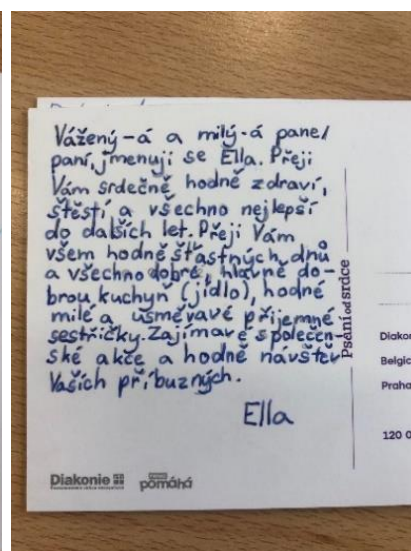 Vážený-á a milý-á pane/
paní, jmenuji se Ella. Přeji
Vám srdečně hodně zdraví,
štěstí a všechno nejlepší
do dalších let. Přeji Vám
všem hodně šťastných dnů
a všechno dobré, hlavně do-
brou kuchyň (jídlo), hodné
milé a usměvavé příjemné
sestřičky. Zajímavé společen-
ské akce a hodně návštěv
Vašich příbuzných.
Ella
Psaní od srdce
Diakon
Belgic
Praha
120 0
Diakonie
pomáhá